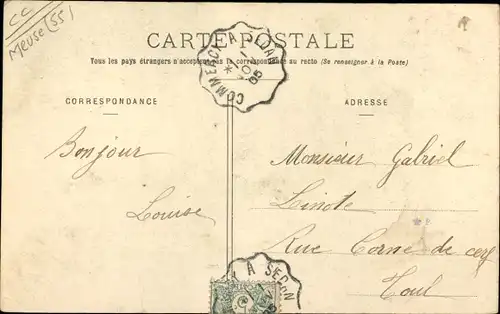 CC
Meuse (55)
CARTE POSTALE
Tous les pays étrangers n'acceptent pas la correspondance au recto (Se renseigner à la Poste)
COMMERCY A SEDAN
05
CORRESPONDANCE
ADRESSE
Bonjour
Louise
Monsieur Gabriel
Linote
Rue Corne de cerf
Toul
A SEDAN